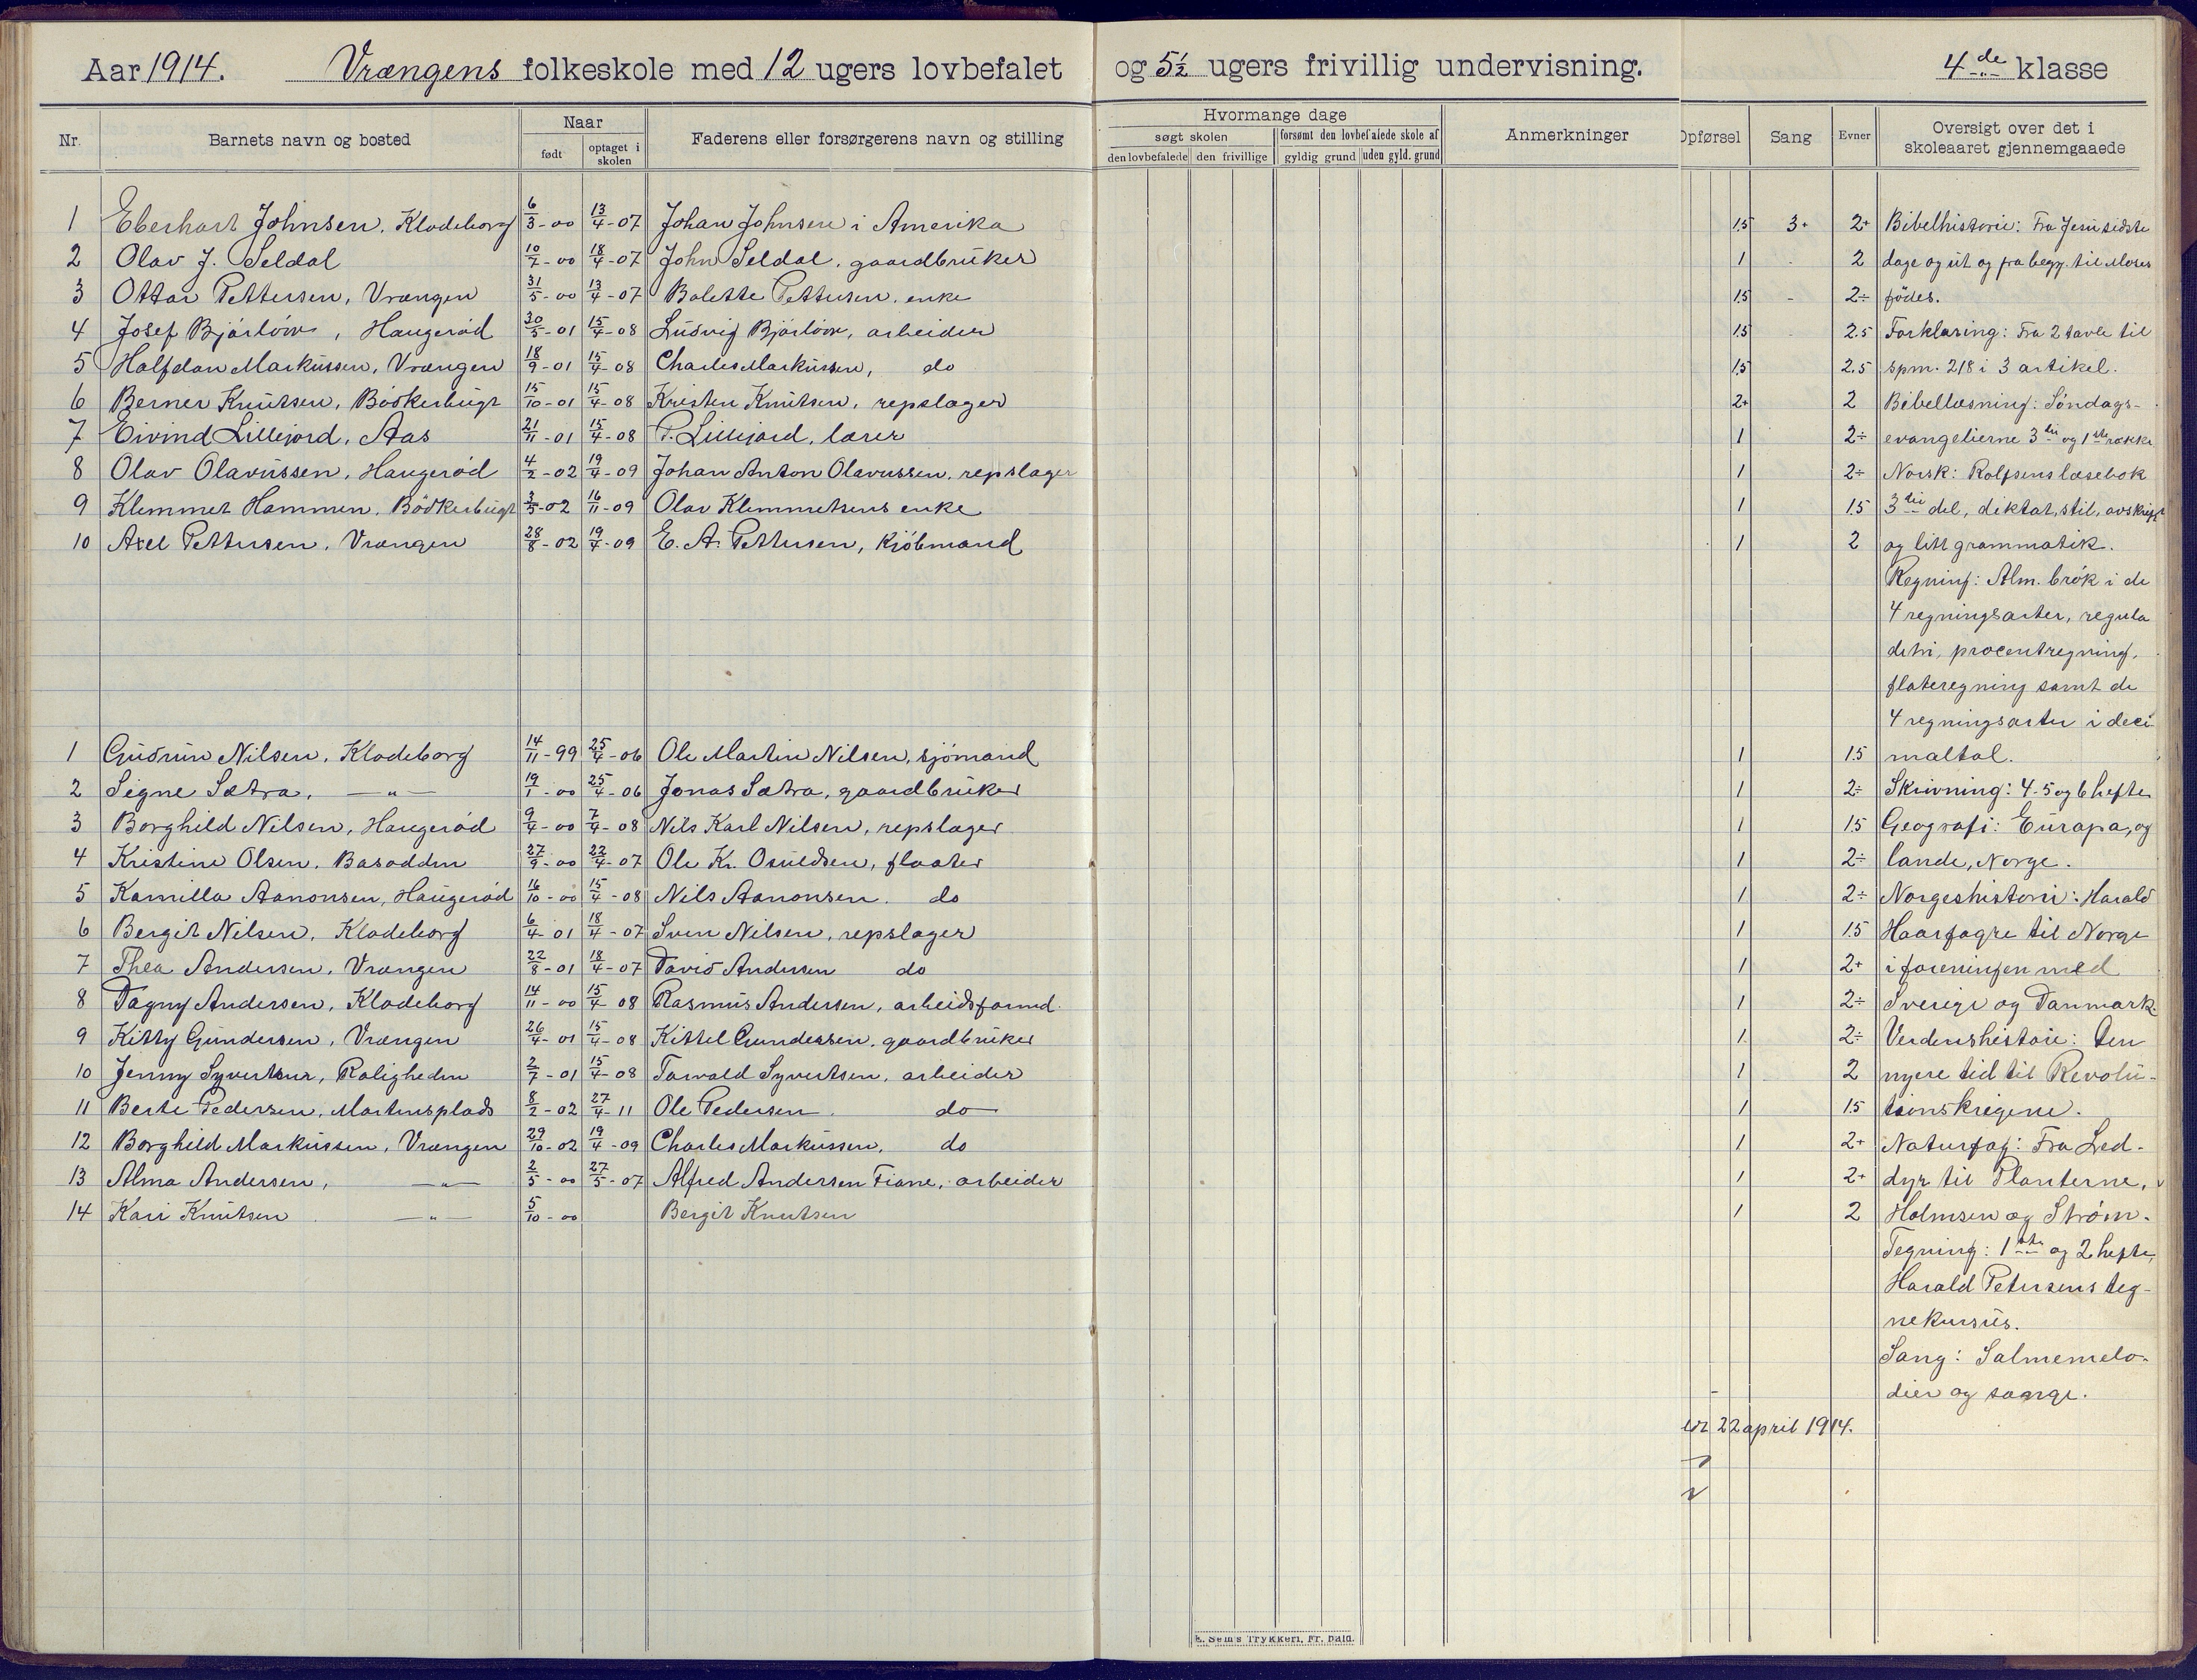 Aar 1914. Vrængens folkeskole med 12 ugers lovbefalet og 5½ ugers frivillig undervisning. 4de klasse
Nr. Barnets navn og bosted Naar født optaget i skolen Faderens eller forsørgerens navn og stilling
Hvormange dage søgt skolen den lovbefalede den frivillige forsømt den lovbefalede skole af gyldig grund uden gyld. grund Anmerkninger
Opførsel Sang Evner Oversigt over det i skoleaaret gjennemgaaede
1 Eberhart Johnsen, Klodeborg 6/3-00 13/4-07 Johan Johnsen i Amerika 1.5 3+ 2+ Bibelhistorie: Fra Jesu sidste
2 Olav J. Seldal 10/7-00 18/4-07 John Seldal, gaardbruker 1 - 2 dage og ut og fra begy. til Moses
3 Ottar Pettersen, Vrængen 31/5-00 13/4-07 Bolette Pettersen, enke 1.5 - 2÷ fødes.
4 Josef Bjørløw, Haugerød 30/5-01 15/4-08 Ludvig Bjørløw, arbeider 1.5 2.5 Forklaring: Fra 2 tavle til
5 Halfdan Markussen, Vrængen 18/9-01 15/4-08 Charles Markussen, do 1.5 2.5 spm. 218 i 3 artikel.
6 Berner Knutsen, Bødkerbugt 15/10-01 15/4-08 Kristen Knutsen, repslager 2+ 2 Bibellæsning: Søndags-
7 Eivind Lillejord, Aas 21/11-01 15/4-08 P. Lillejord, lærer 1 2÷ evangelierne 3die og 1ste række
8 Olav Olavussen, Haugerød 4/2-02 19/4-09 Johan Anton Olavussen, repslager 1 2÷ Norsk: Rolfsens læsebok
9 Klemmet Hammen, Bødkerbugt 3/5-02 16/11-09 Olav Klemmetsens enke 1 1.5 3die del, diktat, stil, avskrift
10 Axel Pettersen, Vrængen 28/8-02 19/4-09 E. A. Pettersen, kjøbmand 1 2 og litt grammatik.
Regning: Alm. brøk i de
4 regningsarter, regula
detri, procentregning,
flateregning samt de
4 regningsarter i deci-
1 Gudrun Nilsen, Klodeborg 14/11-99 25/4-06 Ole Martin Nilsen, sjømand 1 1.5 maltal.
2 Signe Sætra, —"— 19/1-00 25/4-06 Jonas Sætra, gaardbruker 1 2÷ Skrivning: 4-5 og 6 hefte
3 Borghild Nilsen, Haugerød 9/4-00 7/4-08 Nils Karl Nilsen, repslager 1 1.5 Geografi: Europa, og
4 Kristine Olsen, Basodden 27/9-00 22/4-07 Ole Kr. Osuldsen, fløater 1 2÷ lande, Norge.
5 Kamilla Aanonsen, Haugerød 16/10-00 15/4-08 Nils Aanonsen. do 1 2÷ Norgeshistorie: Harald
6 Bergit Nilsen, Klodeborg 6/4-01 18/4-07 Sven Nilsen, repslager 1 1.5 Haarfagre til Norge
7 Thea Andersen, Vrængen 22/8-01 18/4-07 David Andersen do 1 2+ i foreningen med
8 Dagny Andersen, Klodeborg 14/11-00 15/4 08 Rasmus Andersen, arbeidsformd. 1 2÷ Sverige og Danmark.
9 Kitty Gundersen, Vrængen 26/4-01 15/4-08 Kittel Gundersen, gaardbruker 1. 2÷ Verdenshistorie: Den
10 Jenny Syvertsen, Roligheden 2/7-01 15/4-08 Torvald Syvertsen, arbeider 1 2 nyere tid til Revolu-
11 Berte Pedersen, Mortensplads 8/2-02 27/4-11 Ole Pedersen. do 1 1.5 tionskrigene.
12 Borghild Markussen, Vrængen 29/10-02 19/4-09 Charles Markussen, do 1 2+ Naturfag: Fra Led-
13 Alma Andersen, —"— 2/5-00 27/5-07 Alfred Andersen Fiane, arbeider 1 2+ dyr til Planterne,
14 Kari Knutsen —"— 5/10-00 Bergit Knutsen 1 2 Holmsen og Strøm.
Tegning: 1ste og 2 hefte,
Harald Petersens teg-
nekursus.
Sang: Salmemelo-
dier og sange.
22 april 1914.
E. Sem's Trykkeri, Fr.hald.